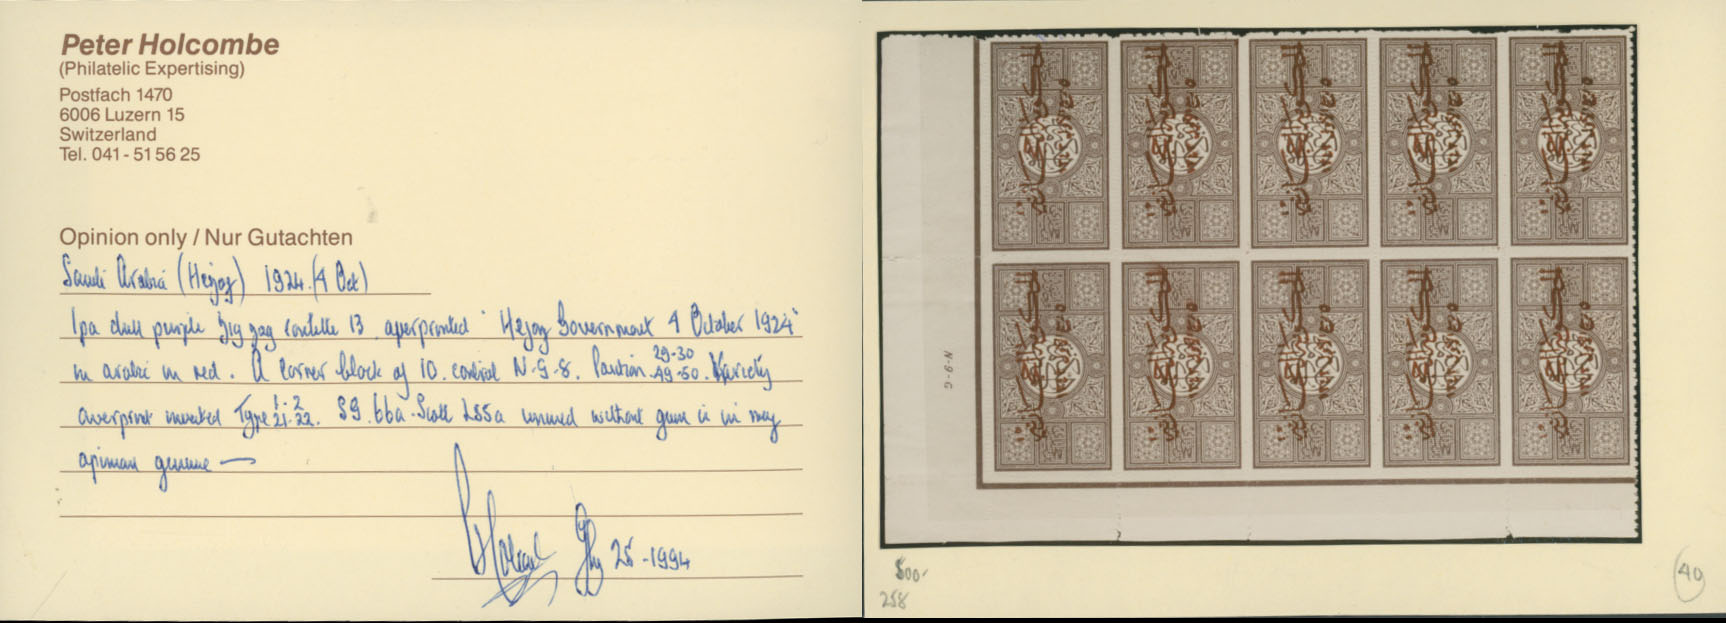 Peter Holcombe
(Philatelic Expertising)
Postfach 1470
6006 Luzern 15
Switzerland
Tel. 041 - 51 56 25
Opinion only / Nur Gutachten
Saudi Arabia (Hejaz) 1924. (4 Oct)
1pa dull purple zig zag roulette 13 overprinted "Hejaz Government 4 October 1924"
in arabic in red. A corner block of 10. control N-9-8. Position 29-30
49-50. Variety
overprint inverted Type 1-2
21-22. SG. 66a. Scott L55a unused without gum is in my
opinion genuine —
25-1994
N-9-G
500-
258
40